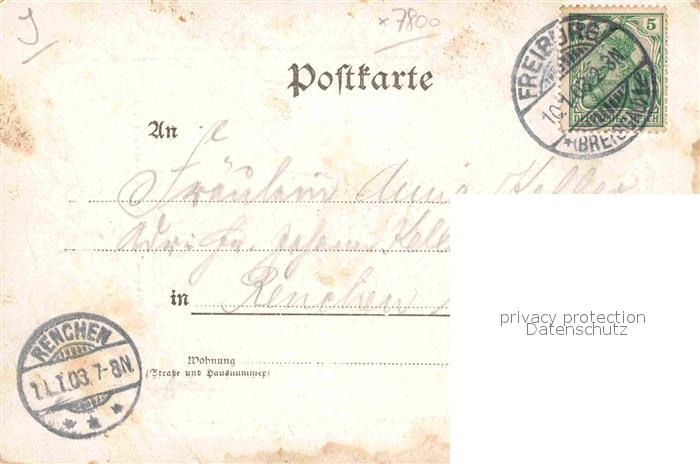 J
x 7800
5
DEUTSCHES REICH
FREIBURG
2-3N
*(BREISGAU)*
Postkarte
An
Fräulein Anna Keller
Adr. Hr. Johann Kell
in Renchen
privacy protection
Datenschutz
RENCHEN
11.1.03. 7-8N.
* * *
Wohnung
(Straße und Hausnummer)